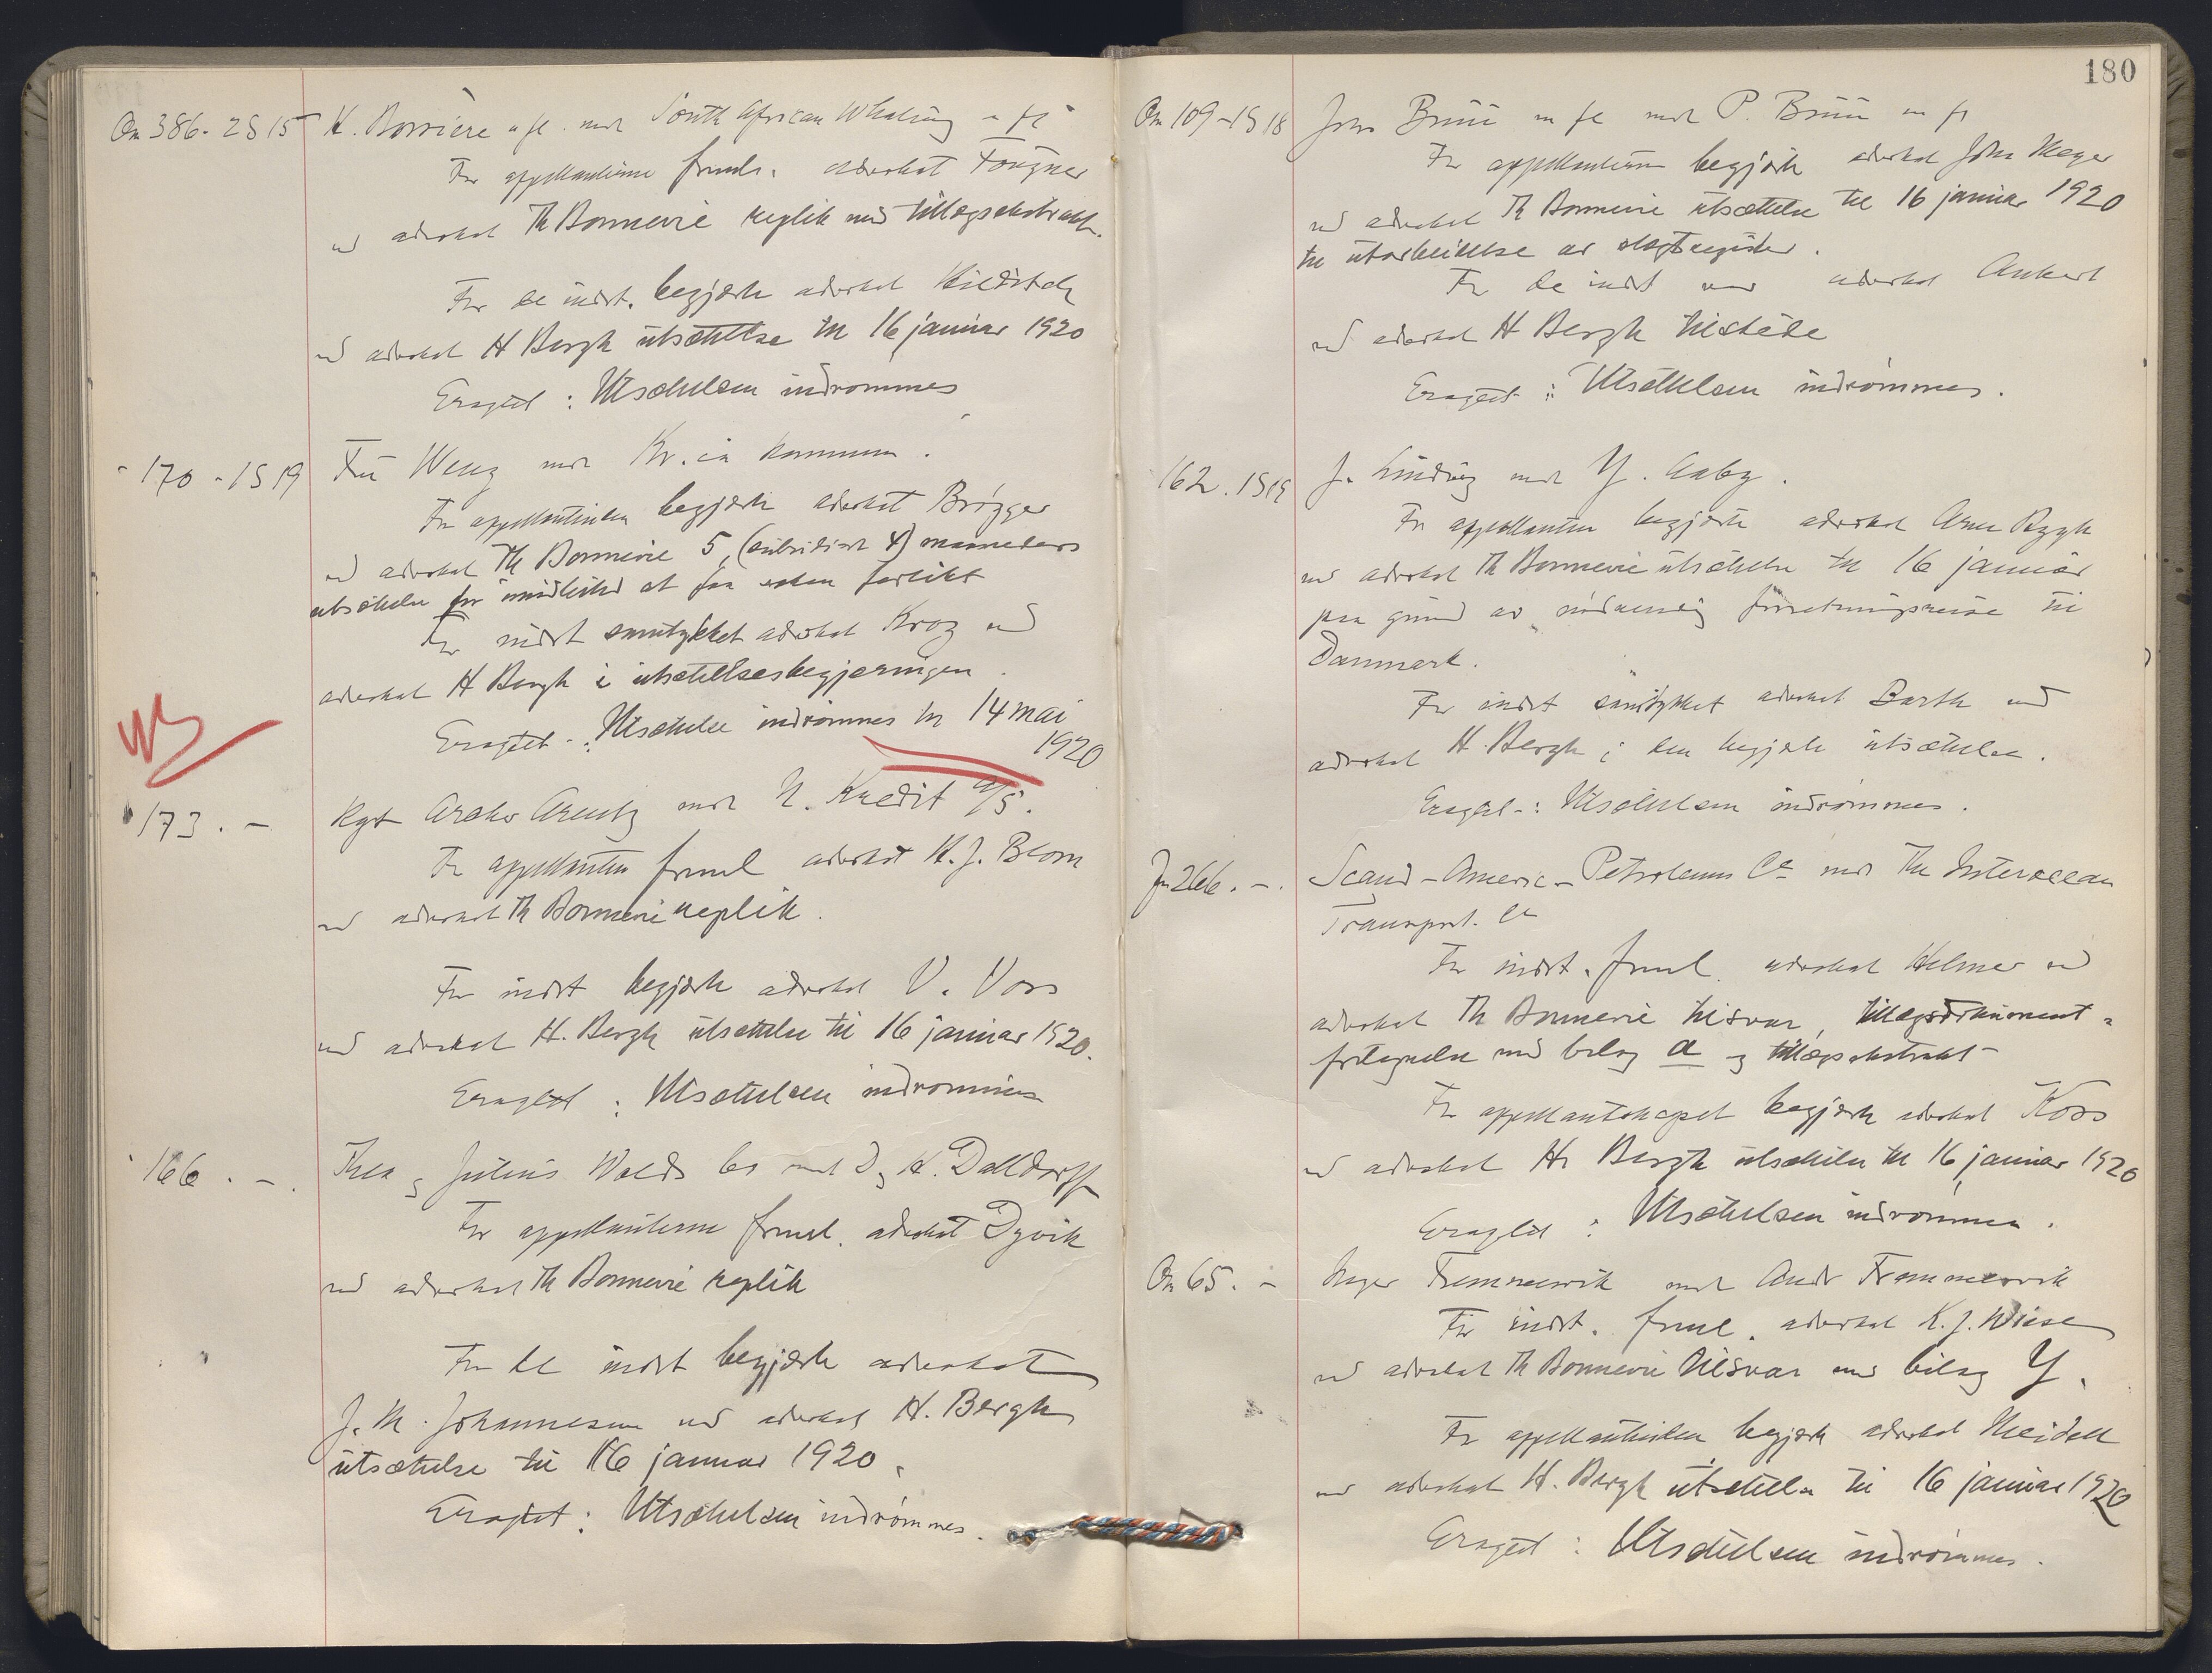 On 386. 2S 15 K. Borriere m fl. mot South African Whaling m fl
For appellanterne freml. advokat Fougner
ved advokat Th Bonnevie replik med tillægsekstrakt.
For de indst. begjærte advokat
ved advokat H Bergh utsættelse til 16 januar 1920
Eragtet : Utsættelsen indrømmes
" 170 - 1S 19 Fru Wenz mot Kr.ia kommune.
For appellantinden begjærte advokat Brøgger
ved advokat Th Bonnevie 5, (subsidiært 4) maaneders
utsættelse for imidlertid at faa saken forlikt
For indst samtykket advokat Krog ved
advokat H Bergh i utsættelsesbegjæringen.
Eragtet - : Utsættelse indrømmes til 14 mai
1920
" 173. - Kgt Andr Arentz mot N. Kredit A/S.
For appellanten freml advokat K. J. Blom
ved advokat Th Bonnevie replik.
For indst begjærte advokat V. Voss
ved advokat H. Bergh utsættelse til 16 januar 1920.
Eragtet : Utsættelsen indrømmes
" 166. -. Thea og Julius Walds bo mot D og K. Dalldorff
For appellanterne freml. advokat Dyvik
ved advokat Th Bonnevie replik
For de indst begjærte advokat
J. M. Johannesen ved advokat H. Bergh
utsættelse til 16 januar 1920.
Eragtet : Utsættelsen indrømmes.
180
On 109 - 1S 18 John Bruu m fl mot P. Bruu m fl
For appellanterne begjærte advokat John Meyer
ved advokat Th Bonnevie utsættelse til 16 januar 1920
til utarbeidelse av slegtsregister.
For de indst var advokat Ankert
ved advokat H Bergh tilstede
Eragtet : Utsættelsen indrømmes.
162. 1S19 J. Lindvig mot Y. Aaby.
For appellanten begjærte advokat Arne Rygh
ved advokat Th Bonnevie utsættelse til 16 januar
paa grund av nødvendig forretningsreise til
Danmark.
For indst samtykket advokat Barth ved
advokat H. Bergh i den begjærte utsættelse.
Eragtet - : Utsættelsen indrømmes.
Jn 266. -. Scand - Americ - Petroleums Co mot The Interocean
Transport. Co
For indst. freml. advokat Helmer ved
advokat Th Bonnevie tilsvar, tillægsdokument-
fortegnelse med bilag a og tillægsekstrakt -
For appellantskapet begjærte advokat Koss
ved advokat Hr Bergh utsættelse til 16 januar 1920
Eragtet : Utsættelsen indrømmes.
On 65. - Inger Fremmerwik mot Andr Fremmerwik
For indst. freml. advokat K. J. Wiese
ved advokat Th Bonnevie tilsvar med bilag Y.
For appellantinden begjærte advokat Meidell
ved advokat H. Bergh utsættelse til 16 januar 1920
Eragtet : Utsættelsen indrømmes.